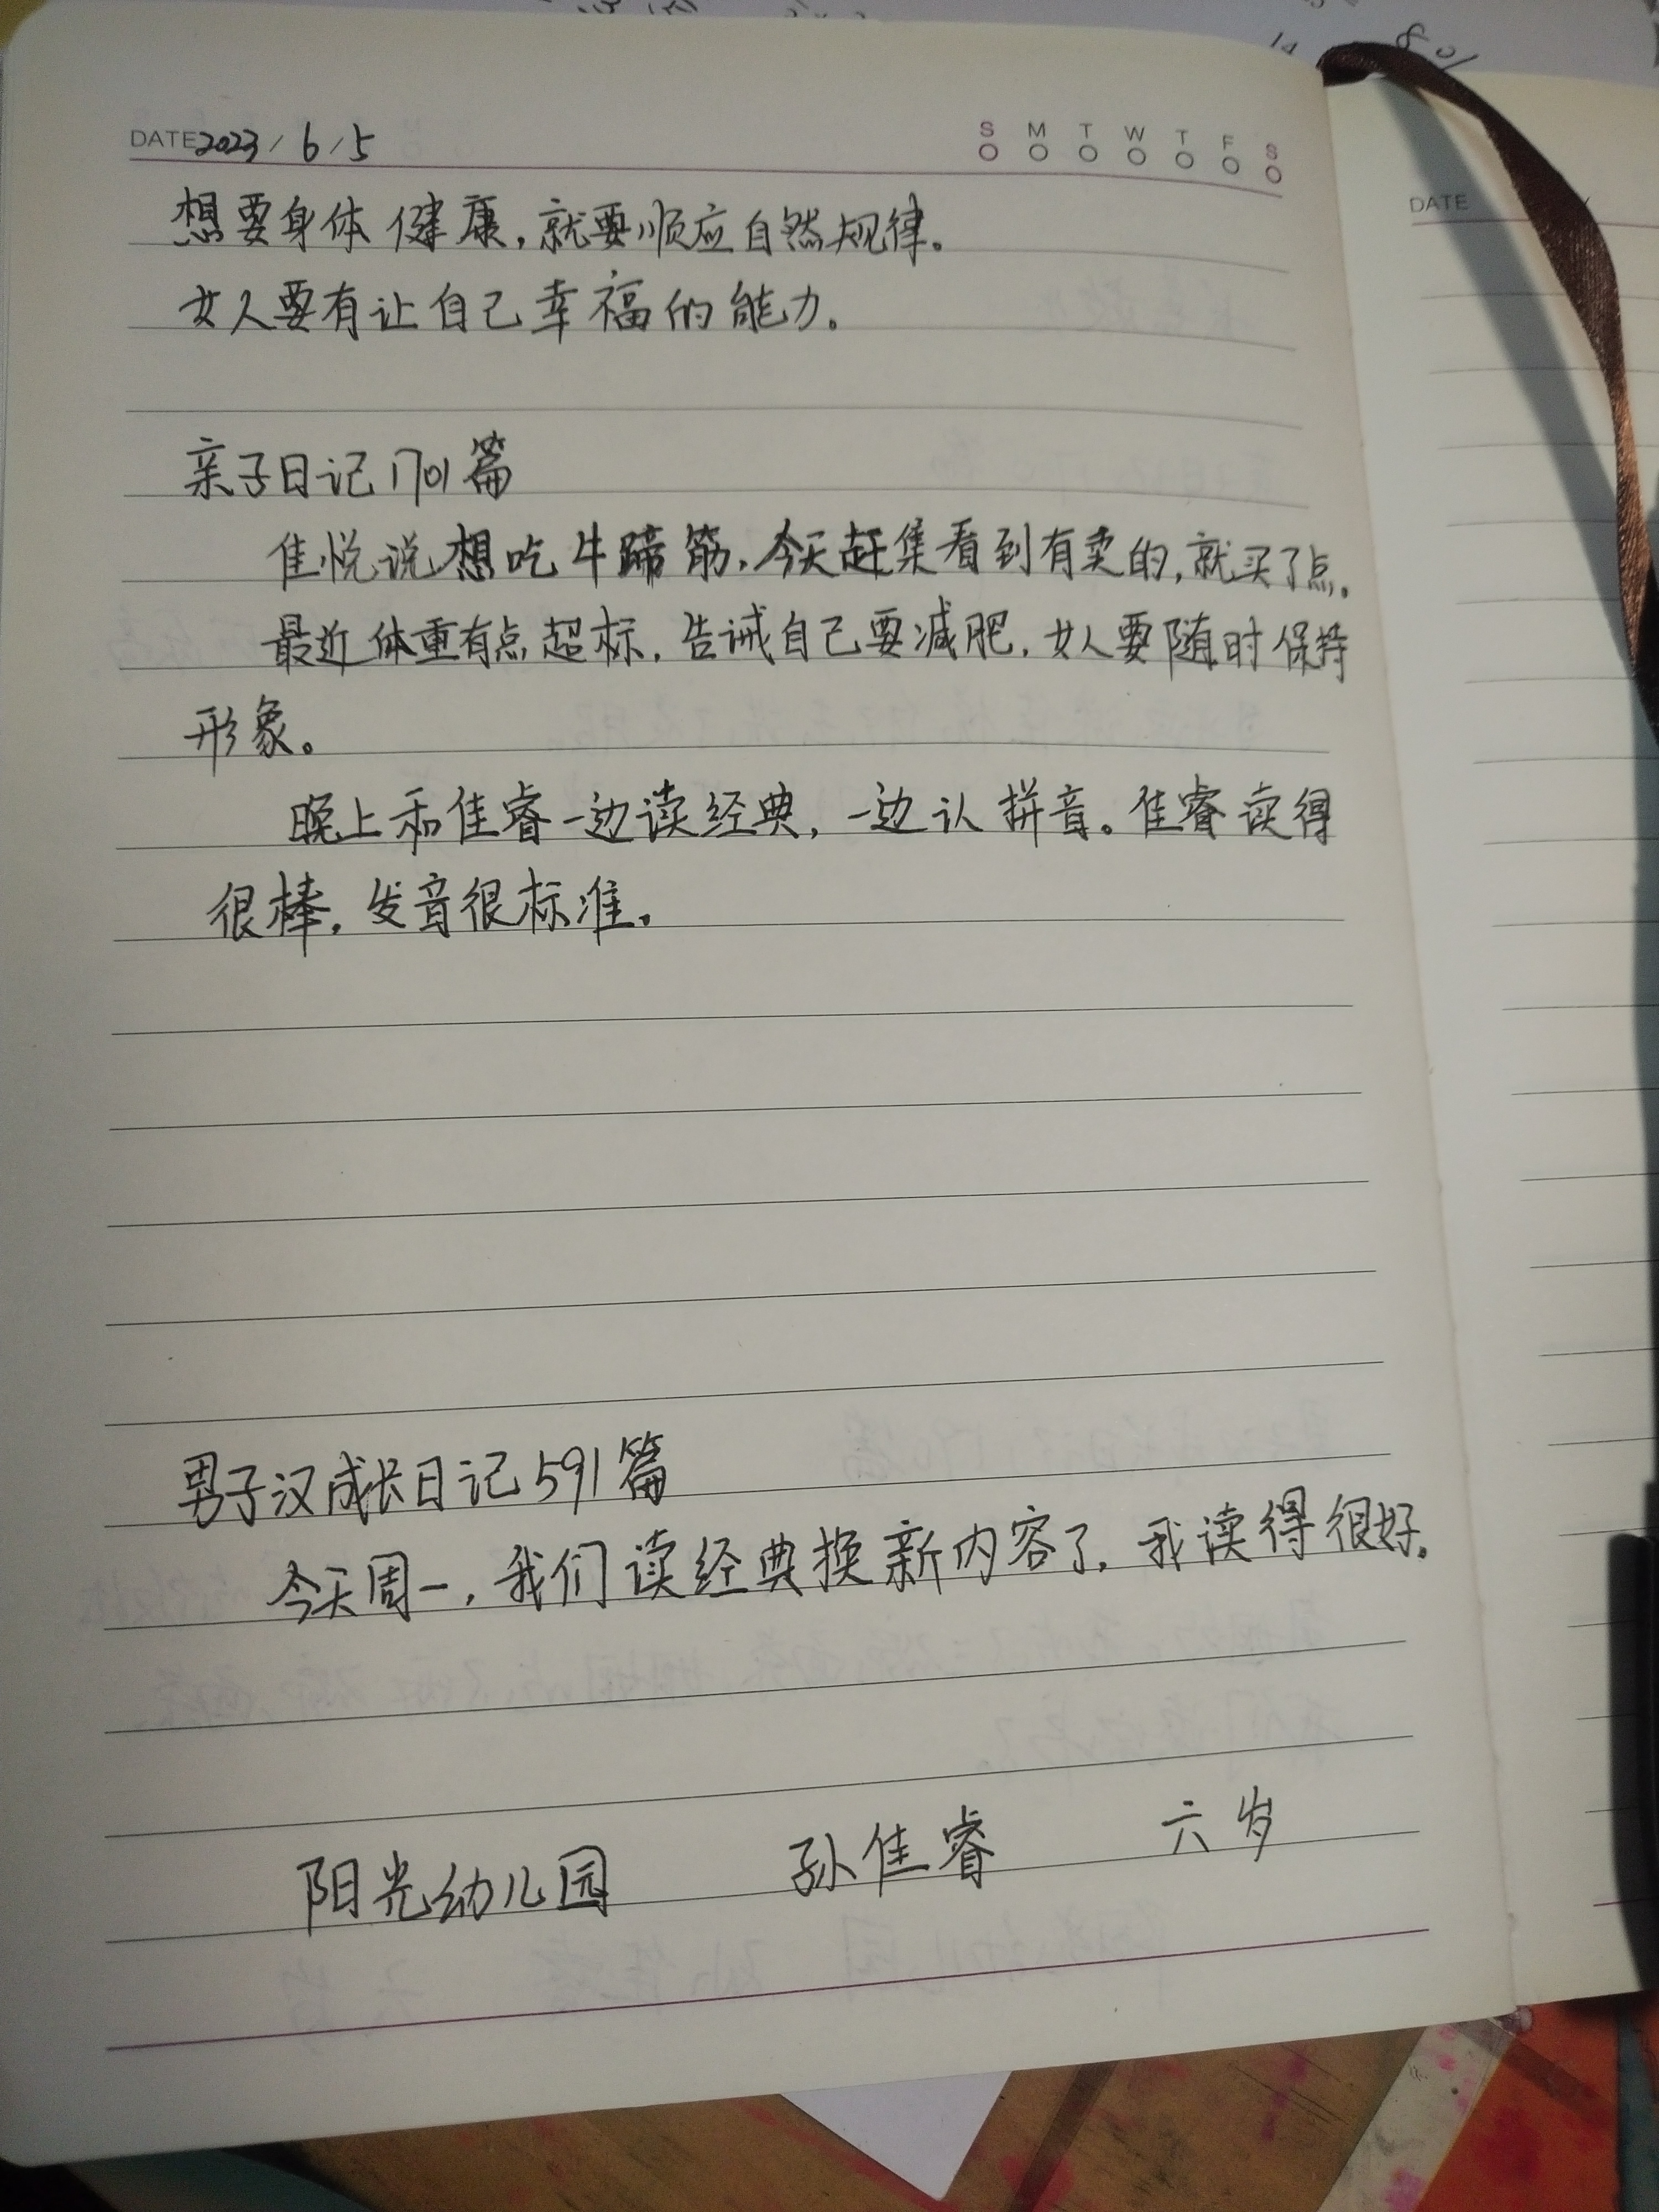 DATE 2023 / 6 / 5
S M T W T F S
想要身体健康,就要顺应自然规律。
女人要有让自己幸福的能力。
亲子日记1701篇
佳悦说想吃牛蹄筋,今天赶集看到有卖的,就买了点。
最近体重有点超标,告诫自己要减肥,女人要随时保持
形象。
晚上和佳睿一边读经典,一边认拼音。佳睿读得
很棒,发音很标准。
男子汉成长日记591篇
今天周一,我们读经典换新内容了,我读得很好。
阳光幼儿园 孙佳睿 六岁
DATE